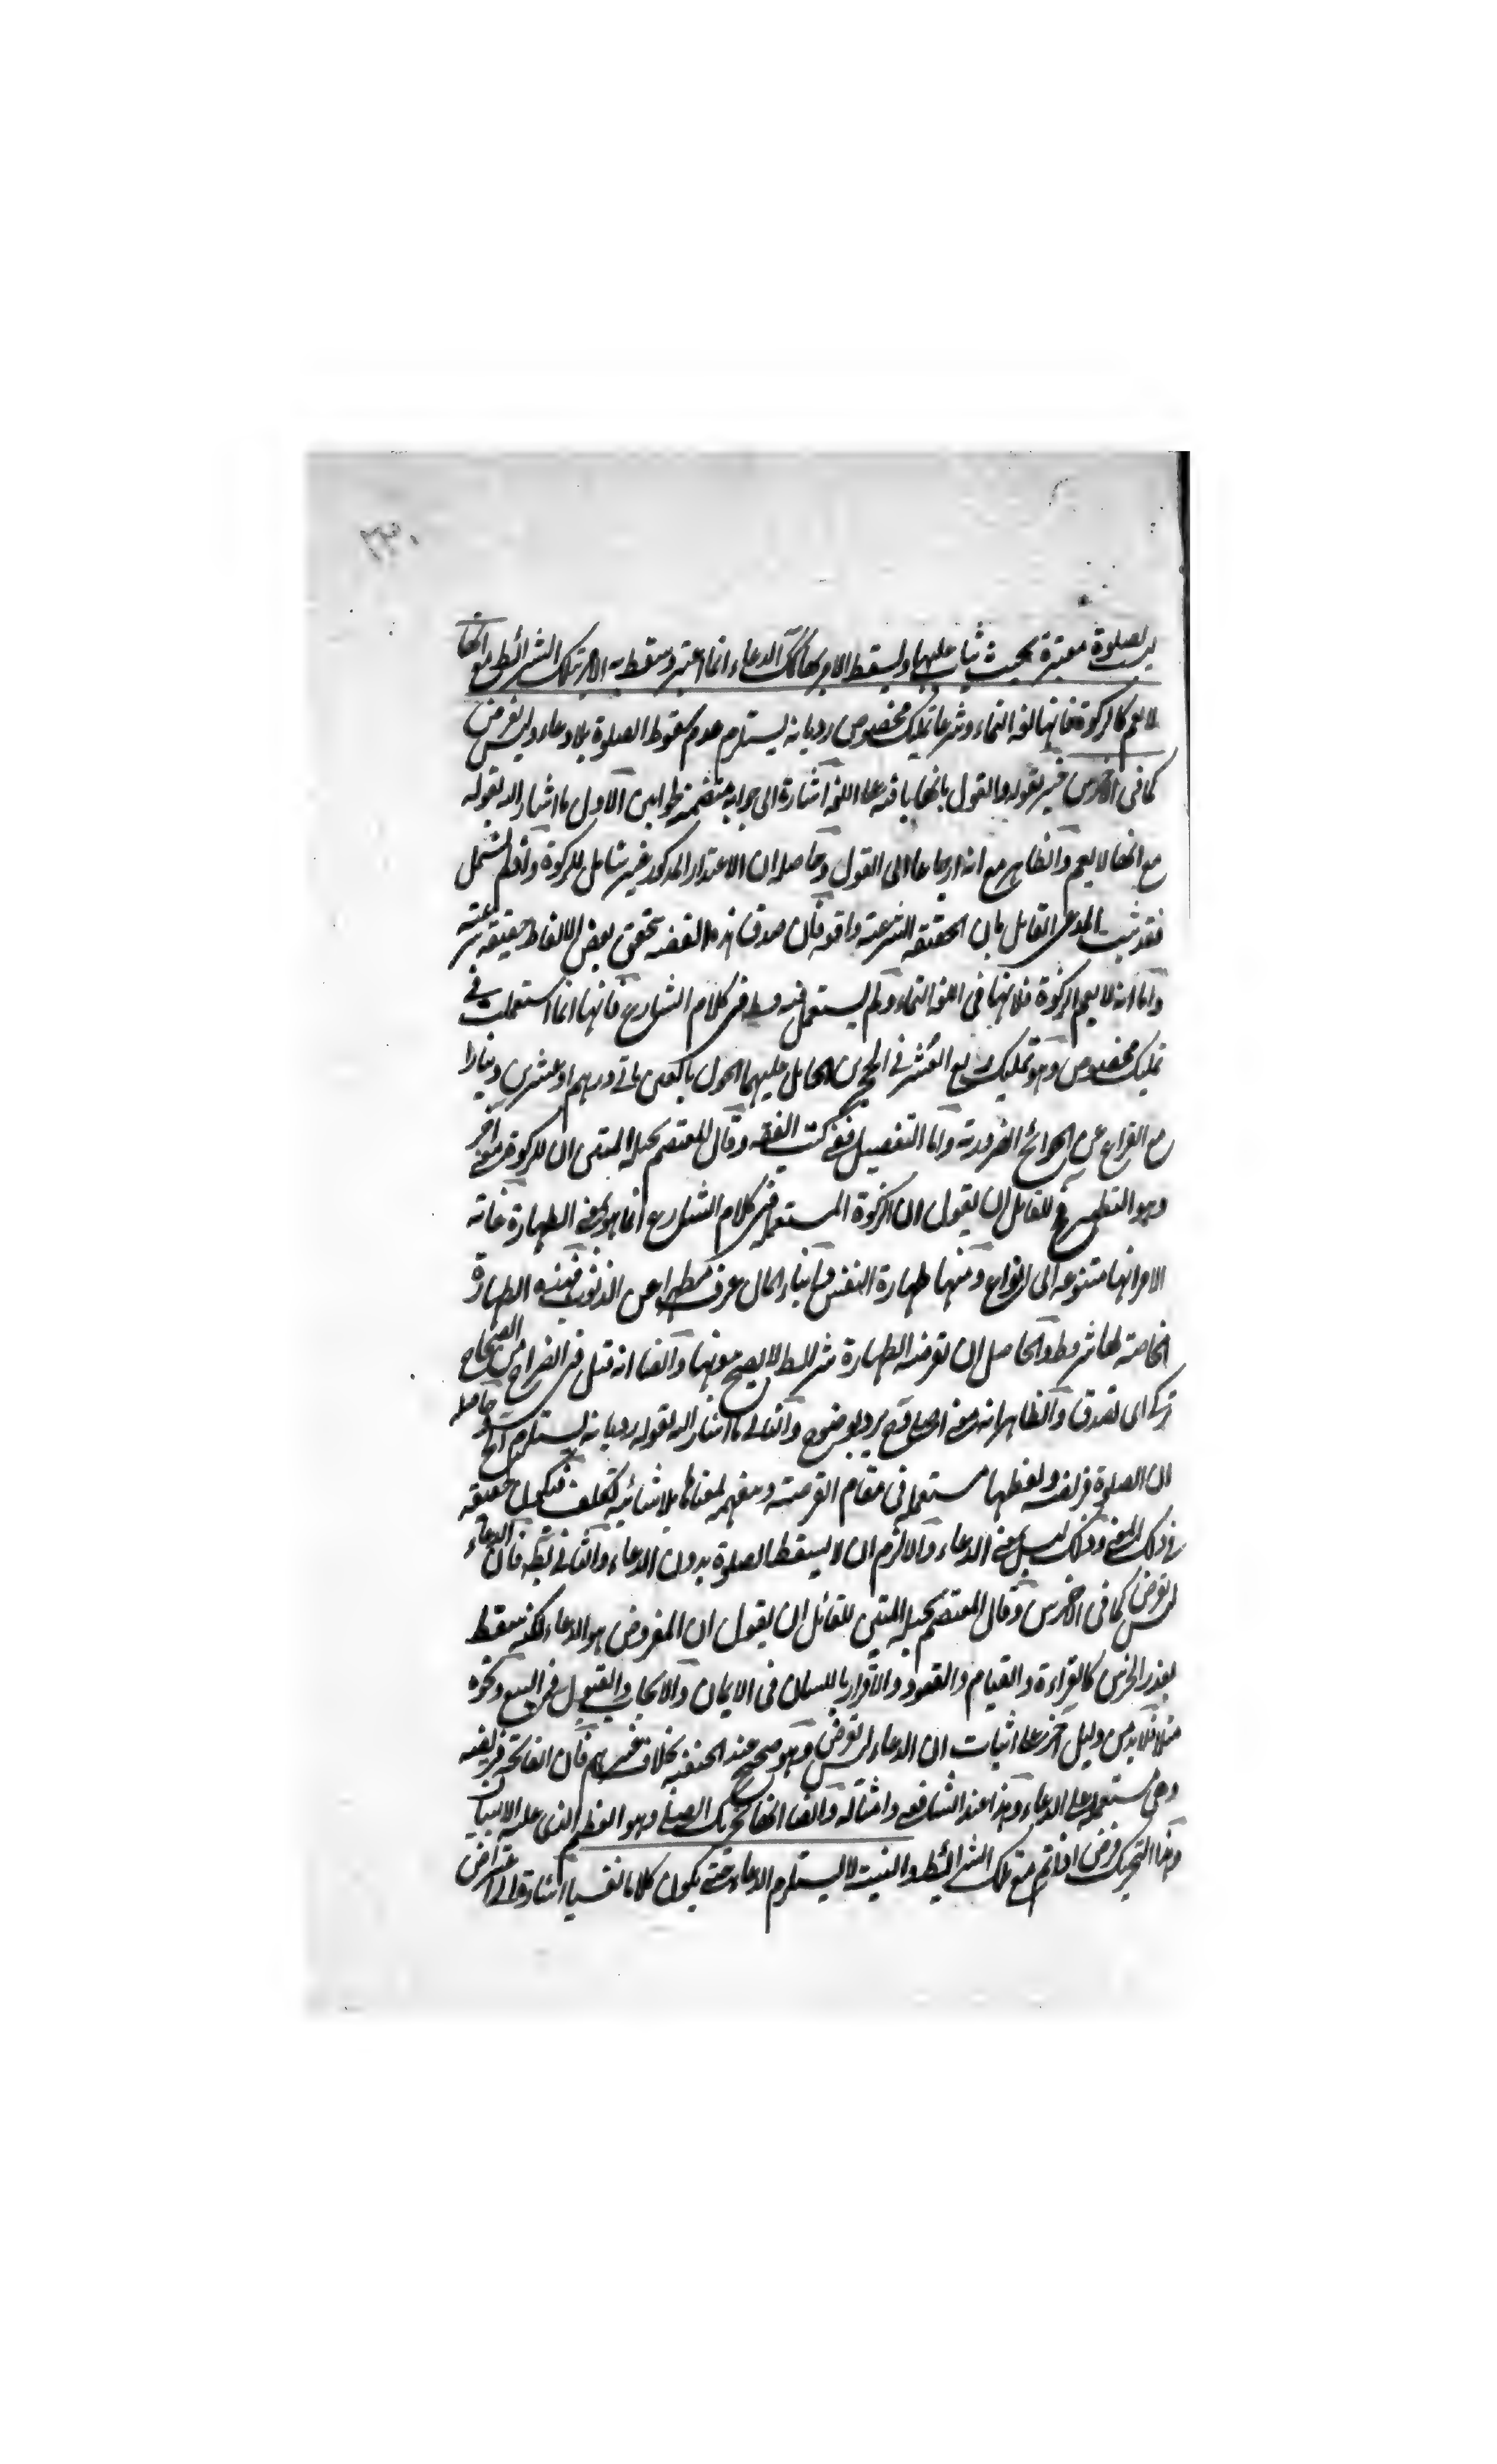 ٢٣٠
ليست الصلوة معتبرة بحيث يثاب عليها ويسقط الامر بها كذلك الدعاء انما اعتبر ويسقط به الامر بتلك الشرائط مع انها
لا يعم كالزكوة فانها لغة النماء وشرعا تمليك مخصوص رد بانه يستلزم عدم سقوط الصلوة بلا دعاء وليس بفرض
كما في الاخرس بقوله والقول بانها باقية على اللغة اشارة الى جواب متضمنة بجوابين الاول ما اشار اليه بقوله
مع انها لا يعم والظاهر مع انه ارجاعا الى القول وحاصله ان الاعتذار المذكور غير شامل للزكوة واذا لم يشمل
فقد ثبت المدعى القائل بان الحقيقة الشرعية واقعة فان صدق هذه القضية بتحقق بعض الالفاظ حقيقة شرعية
واما انه لا يعم الزكوة فلانها في اللغة النماء ولم يستعمل فيه قط في كلام الشارع فانها انما استعملت في
تمليك مخصوص وهو تمليك ربع العشر في الحجرين الحائل عليهما الحول بالغين مائتي درهم او عشرين دينارا
مع الفراغ عن الحوائج الضرورية واما التفصيل ففي كتب الفقه وقال المعتصم بحبله المتين ان للزكوة معنى آخر
وهو التطهير فللقائل ان يقول ان الزكوة المستعملة في كلام الشارع انما هو بمعنى الطهارة غاية
الامر انها متنوعة الى انواع ومنها طهارة النفس بايتاء المال عرف مطهرا عن الذنوب فهذه الطهارة
الخاصة لها شروط والحاصل ان لفرضية الطهارة شرائط لا يصح بدونها وايضا انه قيل في الصراح من الصحاح
زكى اى تصدق والظاهر انه معنى لا يرد بوضوح والثاني ما اشار اليه بقوله رد بانه يستلزم الخ وحاصله
ان الصلوة فريضة ولفظها مستعملة في مقام الفرضية ومفهمة لمعناها بلا شائبة تكلف فيكون حقيقة
في ذلك المعنى وذلك ليس بمعنى الدعاء والا لزم ان لا يسقط الصلوة بدون الدعاء والتالي بط فان الدعاء
ليس بفرض كما في الاخرس وقال المعتصم بحبله المتين للقائل ان يقول ان المفروض هو الدعاء لكنه سقط
بعذر الخرس كالقراءة والقيام والقعود والاقرار باللسان في الايمان والايجاب والقبول في البيع ونحوه
مثلا فلا بد من دليل آخر على اثبات ان الدعاء ليس بفرض وهو صحيح عند الحنفية بخلاف غيرهم فان الفاتحة فريضة
وهي مشتملة على الدعاء وهذا عند الشافعي وامثاله وايضا انها تحريك الصلوين وهو العظم الذي عليه الاليتان
وهذا التحريك فرض اذا تم مع تلك الشرائط والنية لا يستلزم الدعاء حتى يكون كلاما نفسيا اشارة الى اعتراض